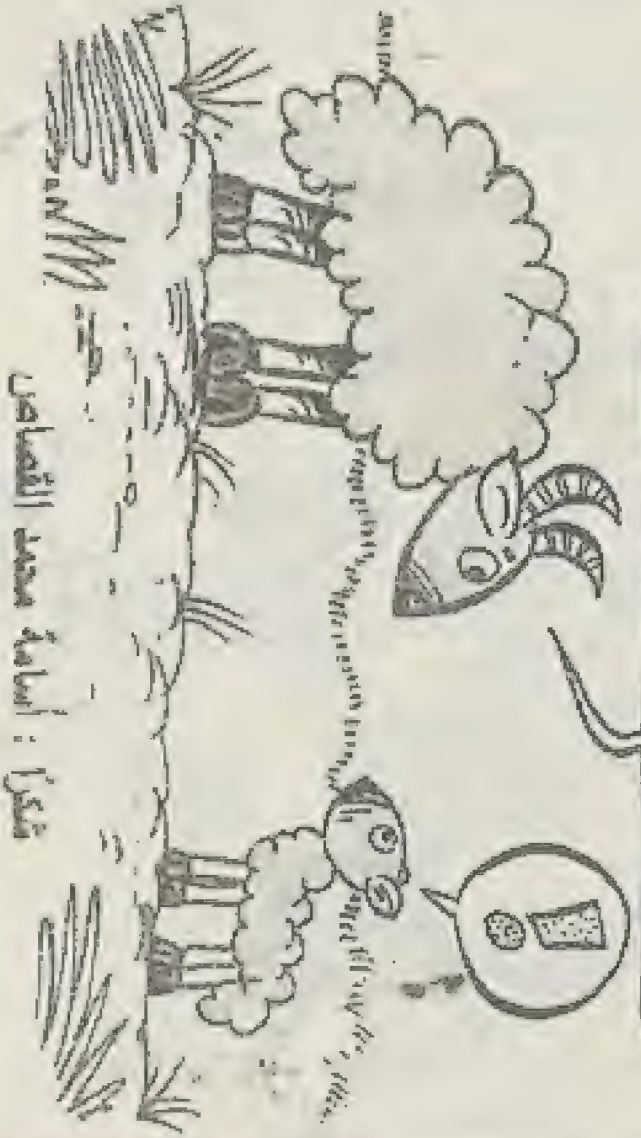 !
شكرا : أسامة محمد القصاص